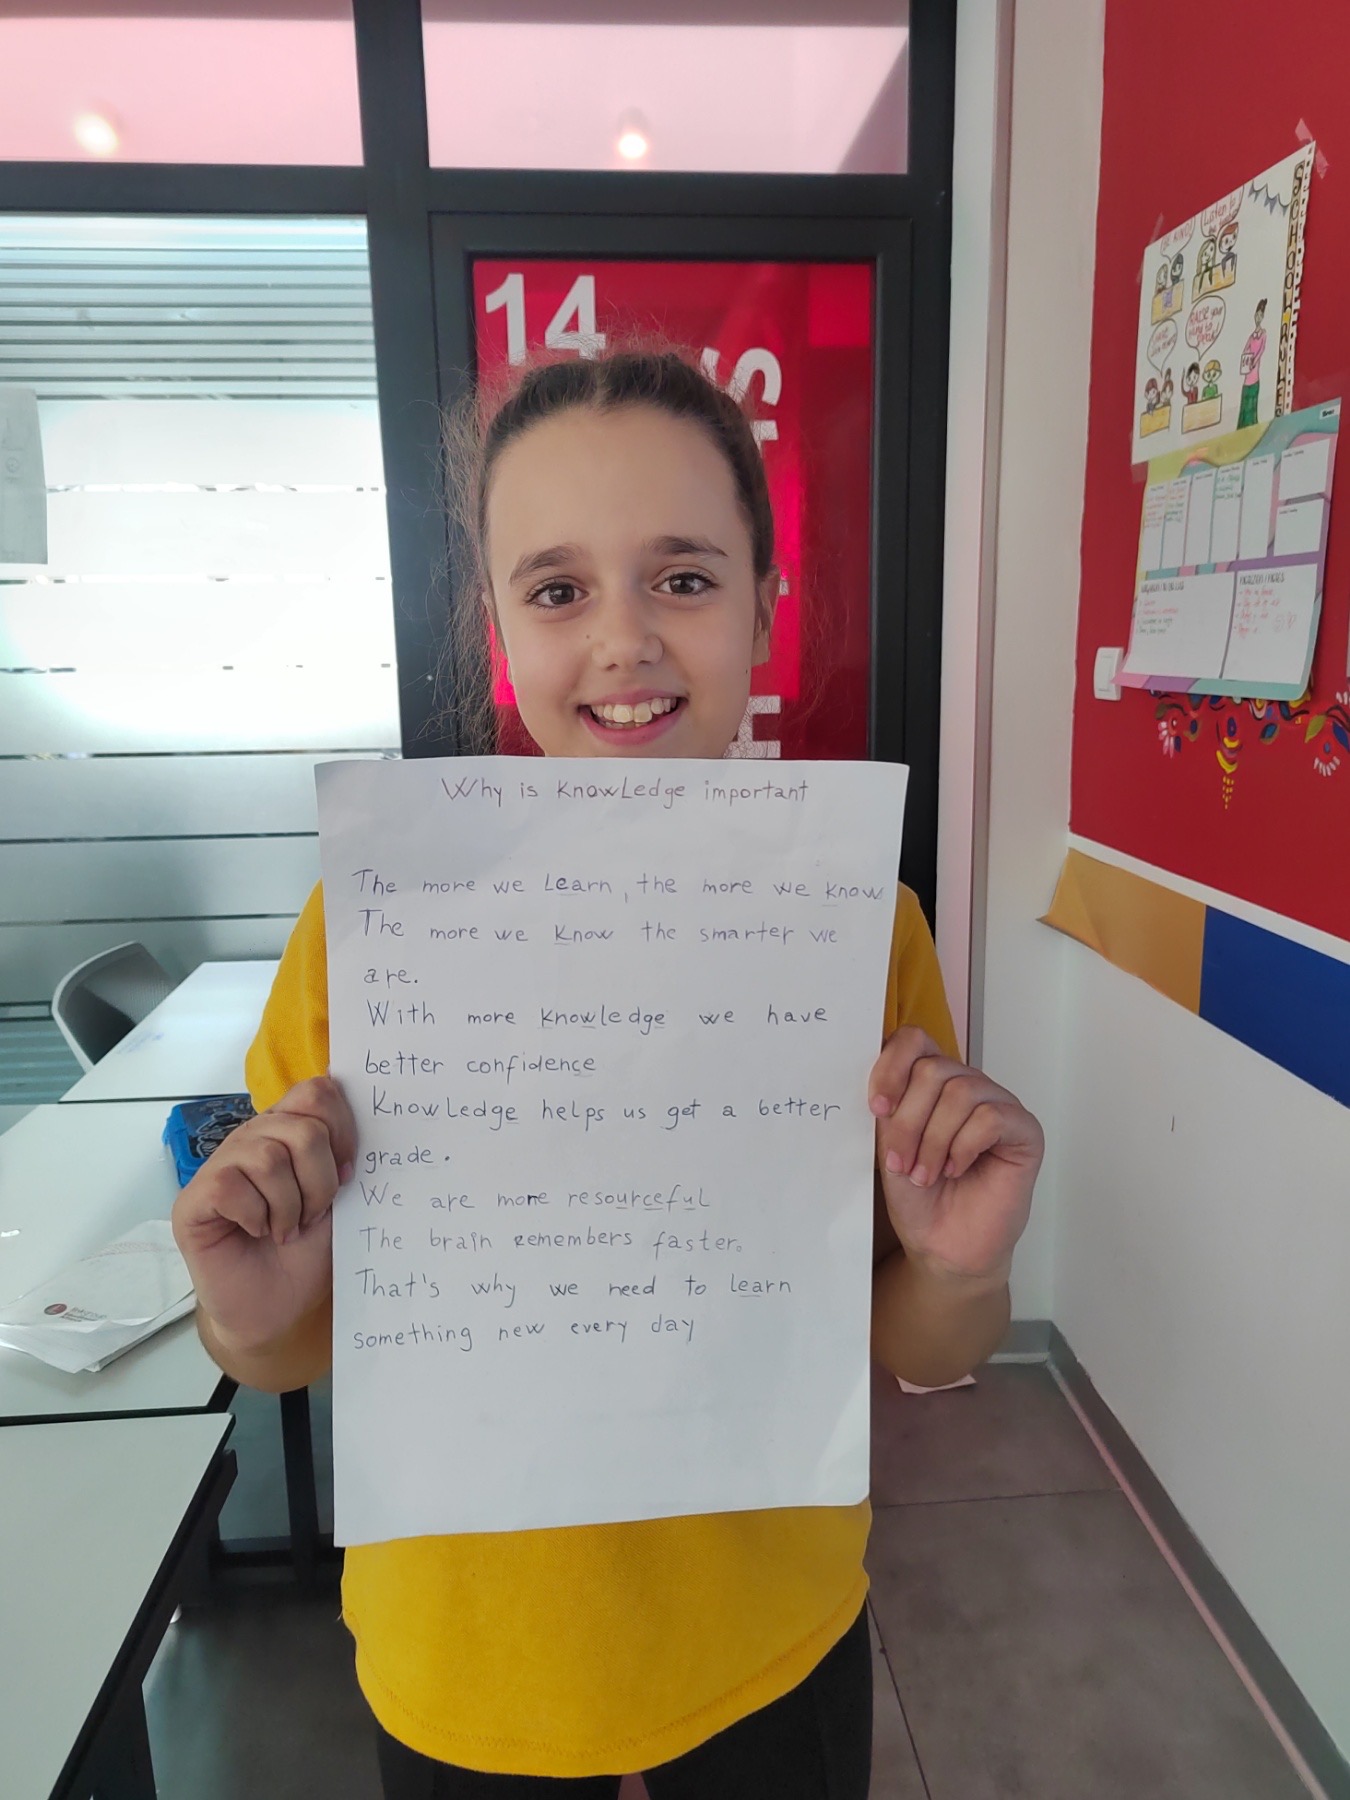 14
Why is knowledge important
The more we learn, the more we know.
The more we know the smarter we
are.
With more knowledge we have
better confidence
Knowledge helps us get a better
grade.
We are more resourceful
The brain remembers faster.
That's why we need to learn
something new every day
BE KIND!
Listen to
RAISE your
SCHOOL